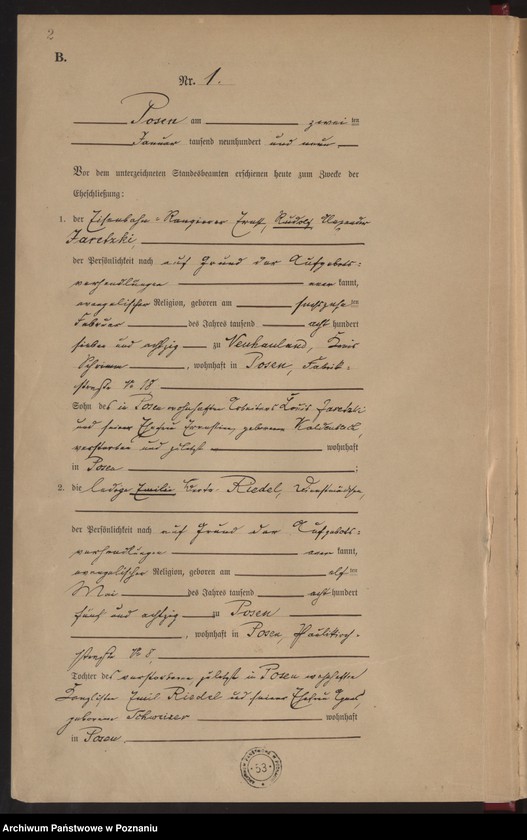 2
B.
Nr. 1.
Posen am zwei ten
Januar tausend neunhundert und neun
Vor dem unterzeichneten Standesbeamten erschienen heute zum Zwecke der
Eheschließung:
1. der Eisenbahn-Rangierer Ernst, Rudolf Alexander
Jaretzki,
der Persönlichkeit nach auf Grund der Aufgebots-
verhandlungen aner kannt,
evangelischer Religion, geboren am sechszehn ten
Februar des Jahres tausend acht hundert
sieben und achtzig zu Neuhauland, Kreis
Schrimm, wohnhaft in Posen, Fabrik-
straße No 18
Sohn des in Posen wohnhaften Arbeiters Louis Jaretzki
und seiner Ehefrau Ernestine, geborenen
verstorben und zuletzt wohnhaft
in Posen ;
2. die ledige Emilie Berta Riedel, Dienstmädchen,
der Persönlichkeit nach auf Grund der Aufgebots-
verhandlungen aner kannt,
evangelischer Religion, geboren am elf ten
Mai des Jahres tausend acht hundert
fünf und achtzig zu Posen
, wohnhaft in Posen, Paulikirch-
straße No 8,
Tochter des verstorbenen, zuletzt in Posen wohnhaften
Kanzlisten Emil Riedel und seiner Ehefrau
geborene Schweizer wohnhaft
in Posen
53
Archiwum Państwowe w Poznaniu